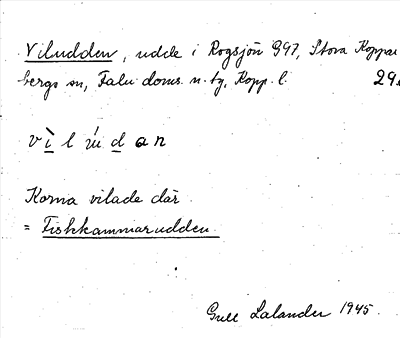 Viludden, udde i Rogsjön 997, Stora Koppar
bergs sn, Falu doms. n. tg, Kopp. l.
v ì l ú d a n
Korna vilade där
= Fiskkammarudden.
Gull Lalander 1945.